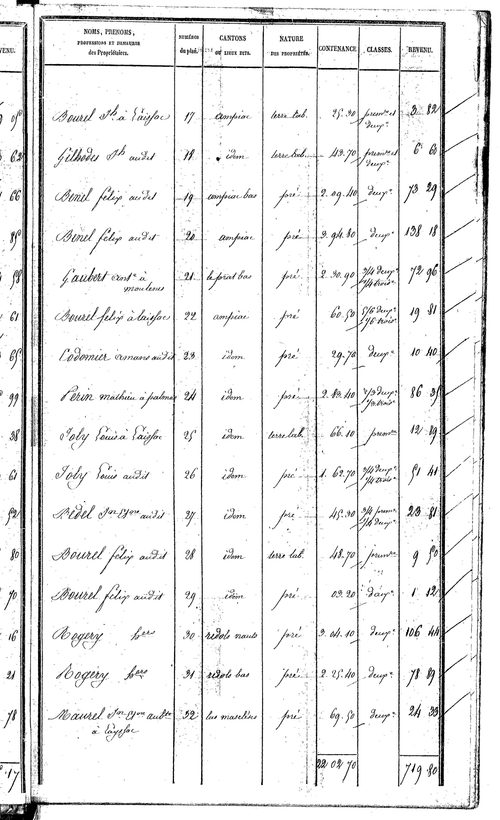 NOMS, PRENOMS, PROFESSIONS ET DEMEURES des Propriétaires. | NUMÉROS du plan. | CANTONS OU LIEUX DITS. | NATURE DES PROPRIÉTÉS. | CONTENANCE. | CLASSES. | REVENU.
Bourel à Laissac 17 ampiac terre lab. 25.30 prem. et deux. 3 82
Gilhodes audit idem terre lab. 43.70 prem. et deux. 6 60
Benil félix audit 19 ampiac bas pré 2.09.40 deux. 73 29
Benil félix audit 20 ampiac pré 3.94.80 deux. 138 18
Gaubert à 21 le prat bas pré 2.30.90 3/4 deux. 1/4 trois. 72 96
Bourel félix à laissac 22 ampiac pré 60.50 5/6 deux. 1/6 trois. 19 81
Codomier amans audit 23 idem pré 29.70 deux. 10 40
Périn mathieu à palmas 24 idem pré 2.83.40 2/3 deux. 1/3 trois. 86 35
Joly Louis à Laissac 25 idem terre lab. 66.10 prem. 12 89
Joly Louis audit 26 idem pré 1.62.70 3/4 deux. 1/4 trois. 51 41
Bedel audit 27 idem pré 45.30 3/4 prem. 1/4 deux. 23 81
Bourel félix audit 28 idem terre lab. 48.70 prem. 9 50
Bourel félix audit 29 idem pré 03.20 deux. 1 12
Rogery 30 redols hauts pré 3.04.10 deux. 106 44
Rogery 31 redols bas pré 2.25.40 deux. 78 89
Maurel 32 las pré 69.50 deux. 24 33
à Layssac
22 02 70 719 80